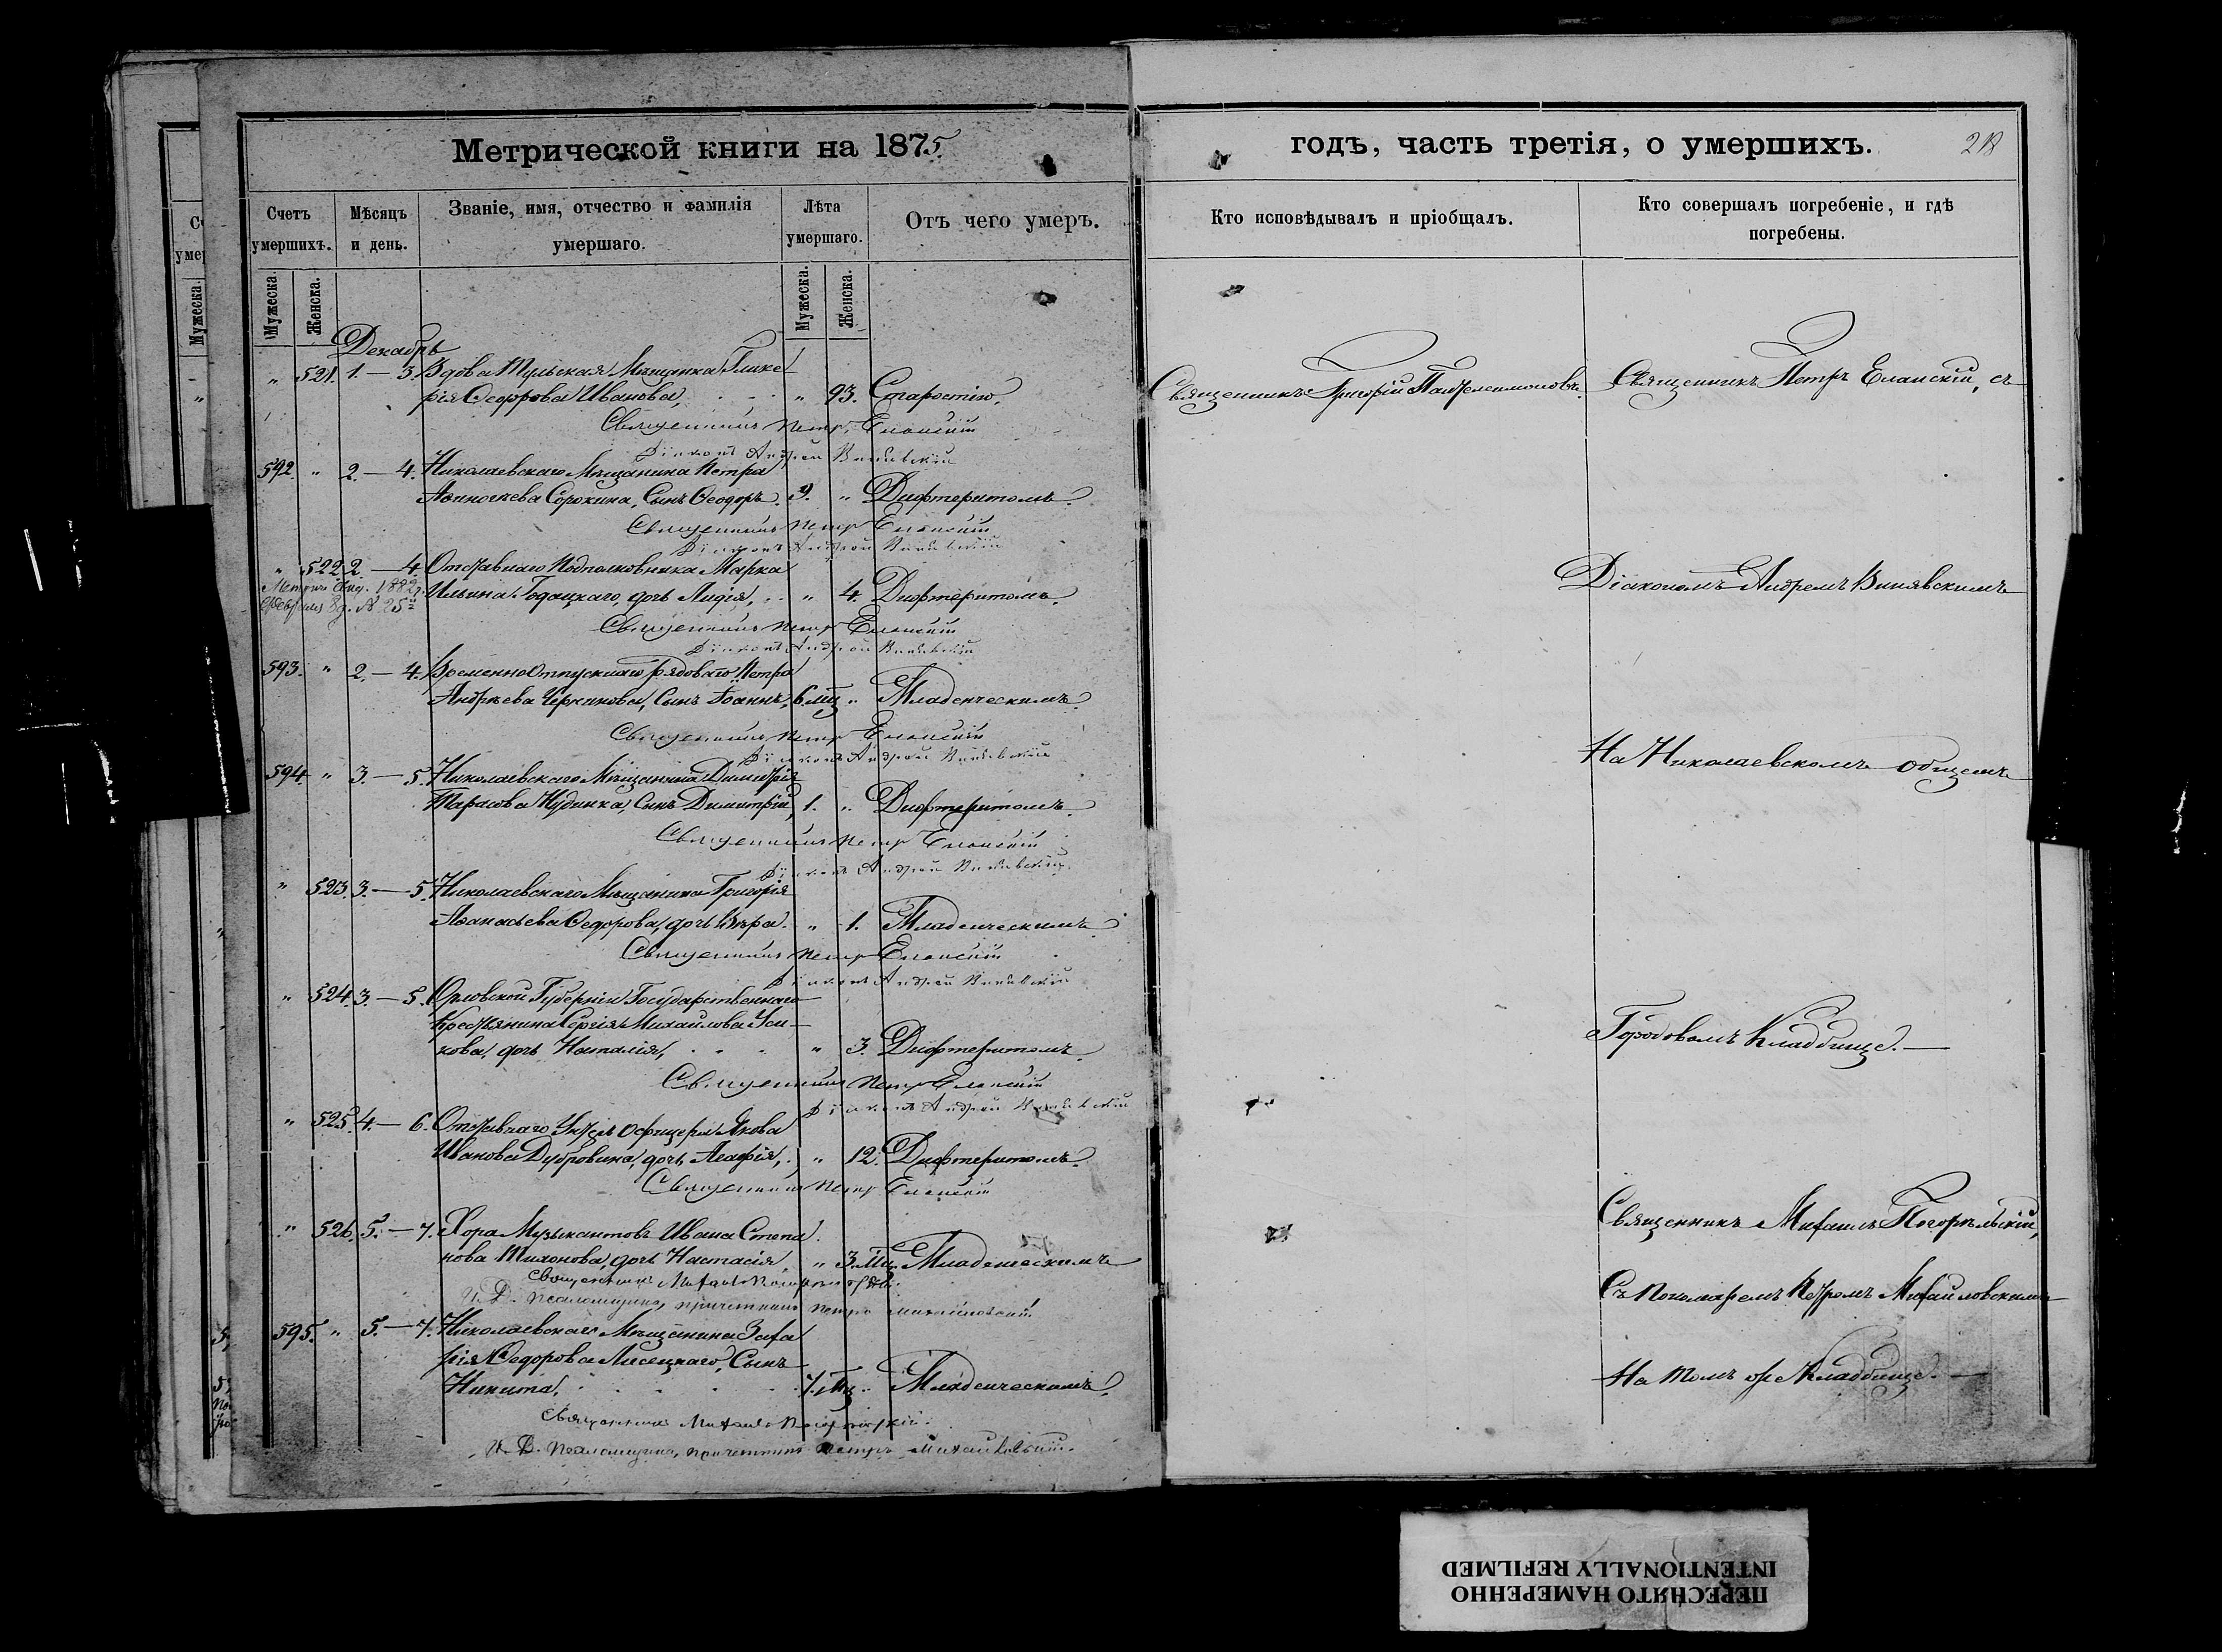 Метрической книги на 1875
Счетъ умершихъ.
Мѣсяцъ и день.
Званіе, имя, отчество и фамилія умершаго.
Лѣта умершаго.
Отъ чего умеръ.
Мужеска.
Женска.
Мужеска.
Женска.
Декабрь
" 521. 1. — 3. Вдова Тульская Мѣщанка Глике
рія Ѳеодорова Иванова, " 93. Старостію.
Священникъ Петръ Еланскій
Діаконъ Андрей Винявскій
592. " 2. — 4. Николаевскаго Мѣщанина Петра
Сорокина, Сынъ Ѳеодоръ. 9. " Дифтеритомъ.
Священникъ Петръ Еланскій
Діаконъ Андрей Винявскій
" 522 2. — 4. Отставнаго Подполковника Марка
Ильина дочь Лидія, " 4. Дифтеритомъ.
1882 г.
Священникъ Петръ Еланскій
Діаконъ Андрей Винявскій
593. " 2. — 4. Временно Отпускнаго рядоваго Петра
Андреева Сынъ Іоаннъ, 6 мц " Младенческимъ.
Священникъ Петръ Еланскій
Діаконъ Андрей Винявскій
594. " 3. — 5. Николаевскаго Мѣщанина Димитрія
Тарасова Сынъ Димитрій, 1. " Дифтеритомъ.
Священникъ Петръ Еланскій
Діаконъ Андрей Винявскій
" 523. 3. — 5. Николаевскаго Мѣщанина Григорія
Аѳанасьева Ѳедорова, дочь Вѣра. " 1. Младенческимъ.
Священникъ Петръ Еланскій
Діаконъ Андрей Винявскій
" 524. 3. — 5. Орловской Губерніи Государственнаго
Крестьянина Сергія Михайлова Уси-
кова, дочь Наталія, " 3. Дифтеритомъ.
Священникъ Петръ Еланскій
Діаконъ Андрей Винявскій
" 525. 4. — 6. Отставнаго Унтеръ Офицера Якова
Иванова Дубровина, дочь Агафія, " 12. Дифтеритомъ.
Священникъ Петръ Еланскій
" 526. 5. — 7. Хора Музыкантовъ Ивана Степа
нова Тихонова, дочь Настасія, " 3. Мц. Младенческимъ
Священникъ Михаилъ Погорѣльскій
И. Д. Псаломщика, причетникъ Петръ Михайловскій
595. " 5. — 7. Николаевскаго Мѣщанина Заха
рія Ѳедорова Лисецкаго, Сынъ
Никита, 7. Мц. " Младенческимъ.
Священникъ Михаилъ Погорѣльскій.
И. Д. Псаломщика, причетникъ Петръ Михайловскій.
годъ, часть третія, о умершихъ.
Кто исповѣдывалъ и пріобщалъ.
Кто совершалъ погребеніе, и гдѣ погребены.
Священникъ Григорій Пантелеимоновъ.
Священникъ Петръ Еланскій, съ
Діакономъ Андреемъ Винявскимъ
На Николаевскомъ общемъ
Городовомъ Кладбище. —
Священникъ Михаилъ Погорѣльскій,
Съ Пономаремъ Петромъ Михайловскимъ
На томъ же Кладбище. —
ПЕРЕСНЯТО НАМЕРЕННО
INTENTIONALLY REFILMED